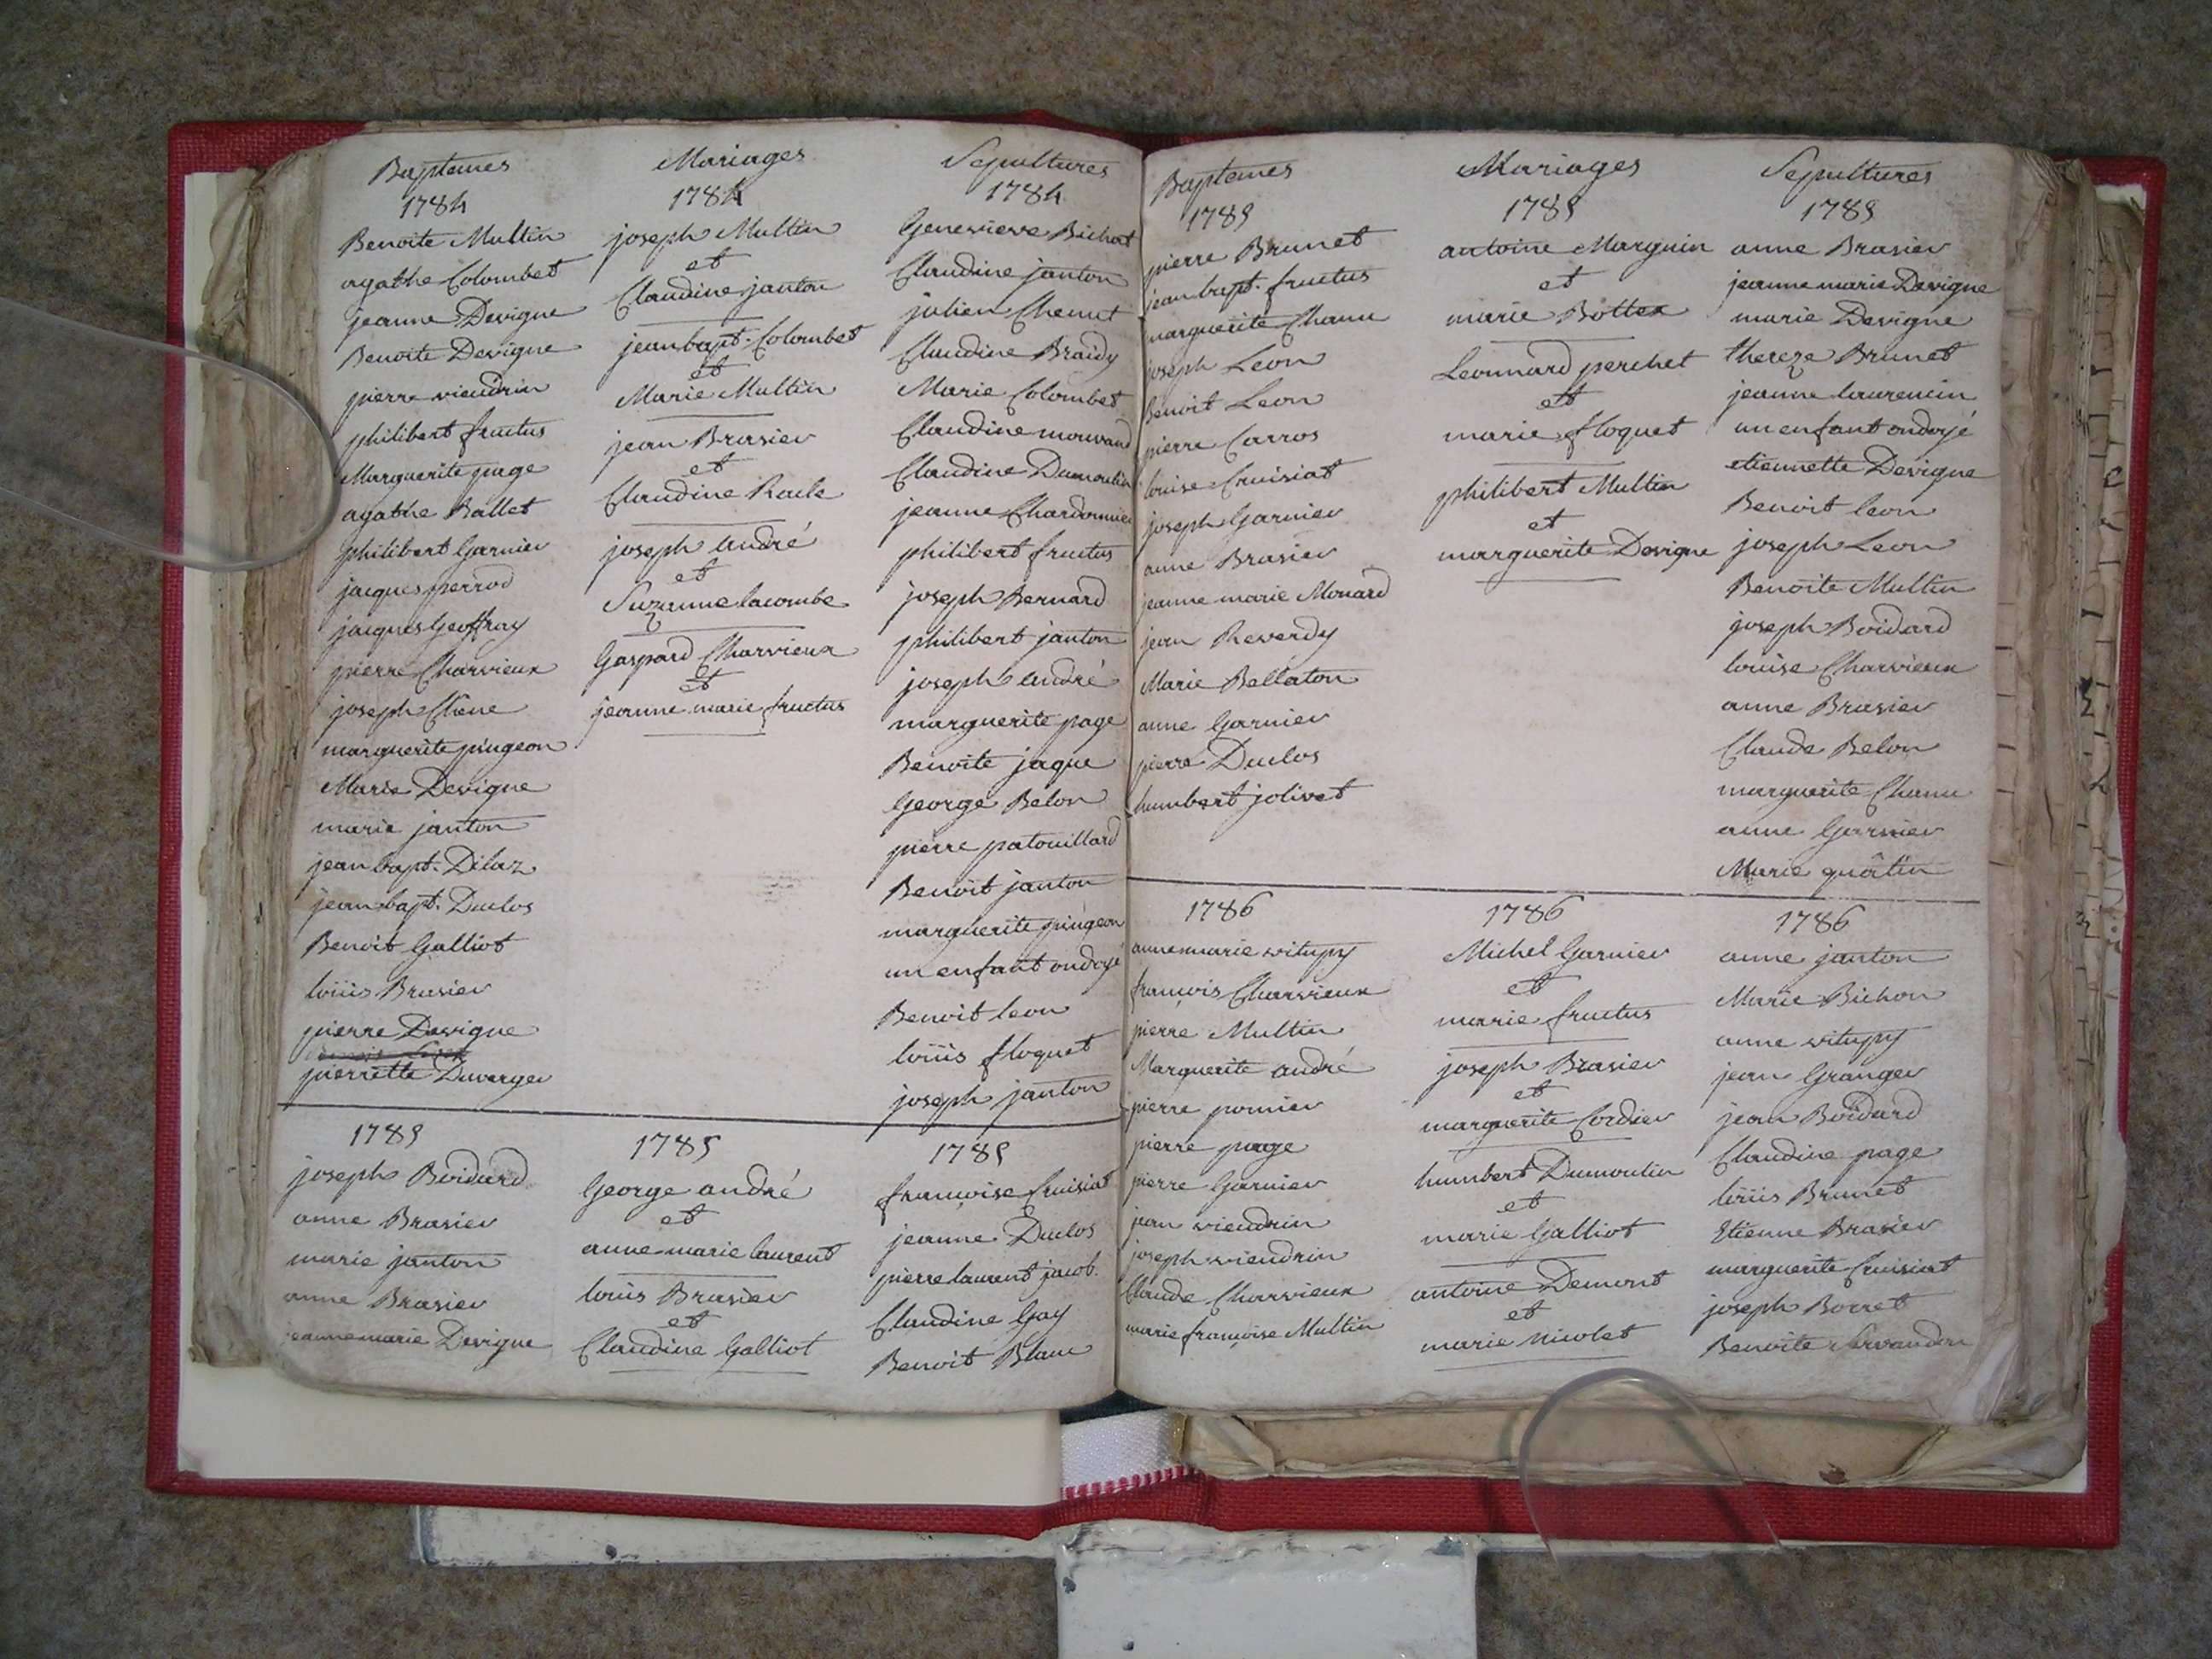 Baptemes
1784
Benoite Multin
agathe Colombet
jeanne Devigne
Benoite Devigne
pierre vieudrin
philibert fructus
Marguerite page
agathe Ballet
philibert Garnier
jacques perrod
jacques Geoffray
pierre Charvieux
joseph Chene
marguerite pingeon
Marie Devigne
marie janton
jean bapt. Dilaz
jean bapt. Duclos
Benoit Galliot
loüis Brasier
pierre Devigne
pierrette Duverger
1785
joseph Boidard
anne Brasier
marie janton
anne Brasier
jeanne marie Devigne
Mariages
1784
joseph Multin
et
Claudine janton
jean bapt. Colombet
et
Marie Multin
jean Brasier
et
Claudine Racle
joseph andré
et
Suzanne lacombe
Gaspard Charvieux
et
jeanne marie fructus
1785
George andré
et
anne marie laurent
loüis Brasier
et
Claudine Galliot
Sepultures
1784
Genevieve Bichat
Claudine janton
julien Chemet
Claudine Braidy
Marie Colombet
Claudine morrand
Claudine Dumoulin
jeanne Chardonnier
philibert fructus
joseph Bernard
philibert janton
joseph andré
marguerite page
Benoite jaque
George Belon
pierre patouillard
Benoit janton
marguerite pingeon
un enfant ondoyé
Benoit leon
loüis floquet
joseph janton
1785
françoise fruisiat
jeanne Duclos
pierre laurent jacob.
Claudine Gay
Benoit Blanc
Baptemes
1785
pierre Brunet
jean bapt. fructus
marguerite Chanu
joseph Leon
Benoit Leon
pierre Carros
louise Cruisiat
joseph Garnier
anne Brasier
jeanne marie Monard
jean Reverdy
Marie Bellaton
anne Garnier
pierre Duclos
humbert jolivet
1786
anne marie vitupy
françois Charvieux
pierre Multin
Marguerite andré
pierre pomier
pierre page
pierre Garnier
jean vieudrin
joseph vieudrin
Claude Charvieux
marie françoise Multin
Mariages
1785
antoine Marguin
et
marie Bottex
Leonnard perchet
et
marie floquet
philibert Multin
et
marguerite Devigne
1786
Michel Garnier
et
marie fructus
joseph Brasier
et
marguerite Cordier
humbert Dumoulin
et
marie Galliot
antoine Demont
et
marie nicolet
Sepultures
1785
anne Brasier
jeanne marie Devigne
marie Devigne
thereze Brunet
jeanne laurencin
un enfant ondoyé
etiennette Devigne
Benoit leon
joseph Leon
Benoite Multin
joseph Boidard
louise Charvieux
anne Brasier
Claude Belon
marguerite Chanu
anne Garnier
Marie quâtin
1786
anne janton
Marie Bichon
anne vitupy
jean Granger
jean Boidard
Claudine page
loüis Brunet
Etienne Brasier
marguerite Cruisiat
joseph Borret
Benoite Servandon